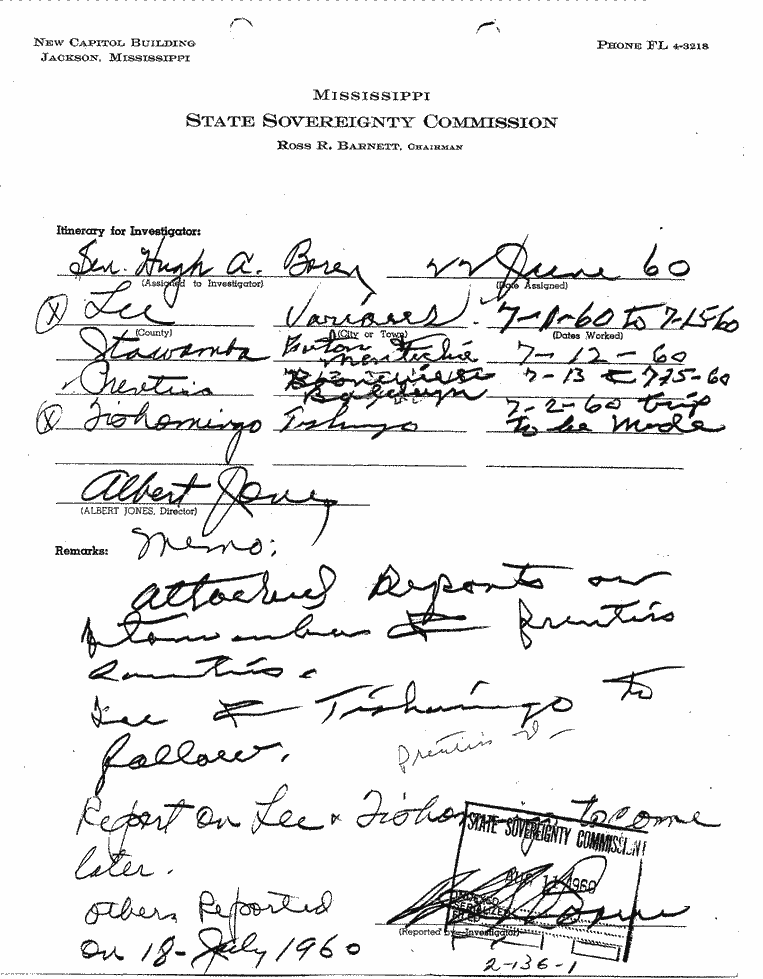 NEW CAPITOL BUILDING
JACKSON, MISSISSIPPI
PHONE FL 4-3218
MISSISSIPPI
STATE SOVEREIGNTY COMMISSION
ROSS R. BARNETT, CHAIRMAN
Itinerary for Investigator:
Sen. Hugh A. Boren 22 June 60
(Assigned to Investigator) (Date Assigned)
(X) Lee Various 7-1-60 to 7-15-60
(County) (City or Town) (Dates Worked)
Itawamba 7-12-60
Prentiss 7-13 & 7-15-60
7-2-60 trip
(X) Tishomingo Tishomingo to be made
Albert Jones
(ALBERT JONES, Director)
Remarks: Memo:
Attached Reports on
Itawamba & Prentiss
Counties.
Lee & Tishomingo to
follow.
Prentiss
Report on Lee & Tishomingo to come
later.
STATE SOVEREIGNTY COMMISSION
AUG 11 1960
others Reported
(Reported by—Investigator)
on 18-July 1960
2-136-1